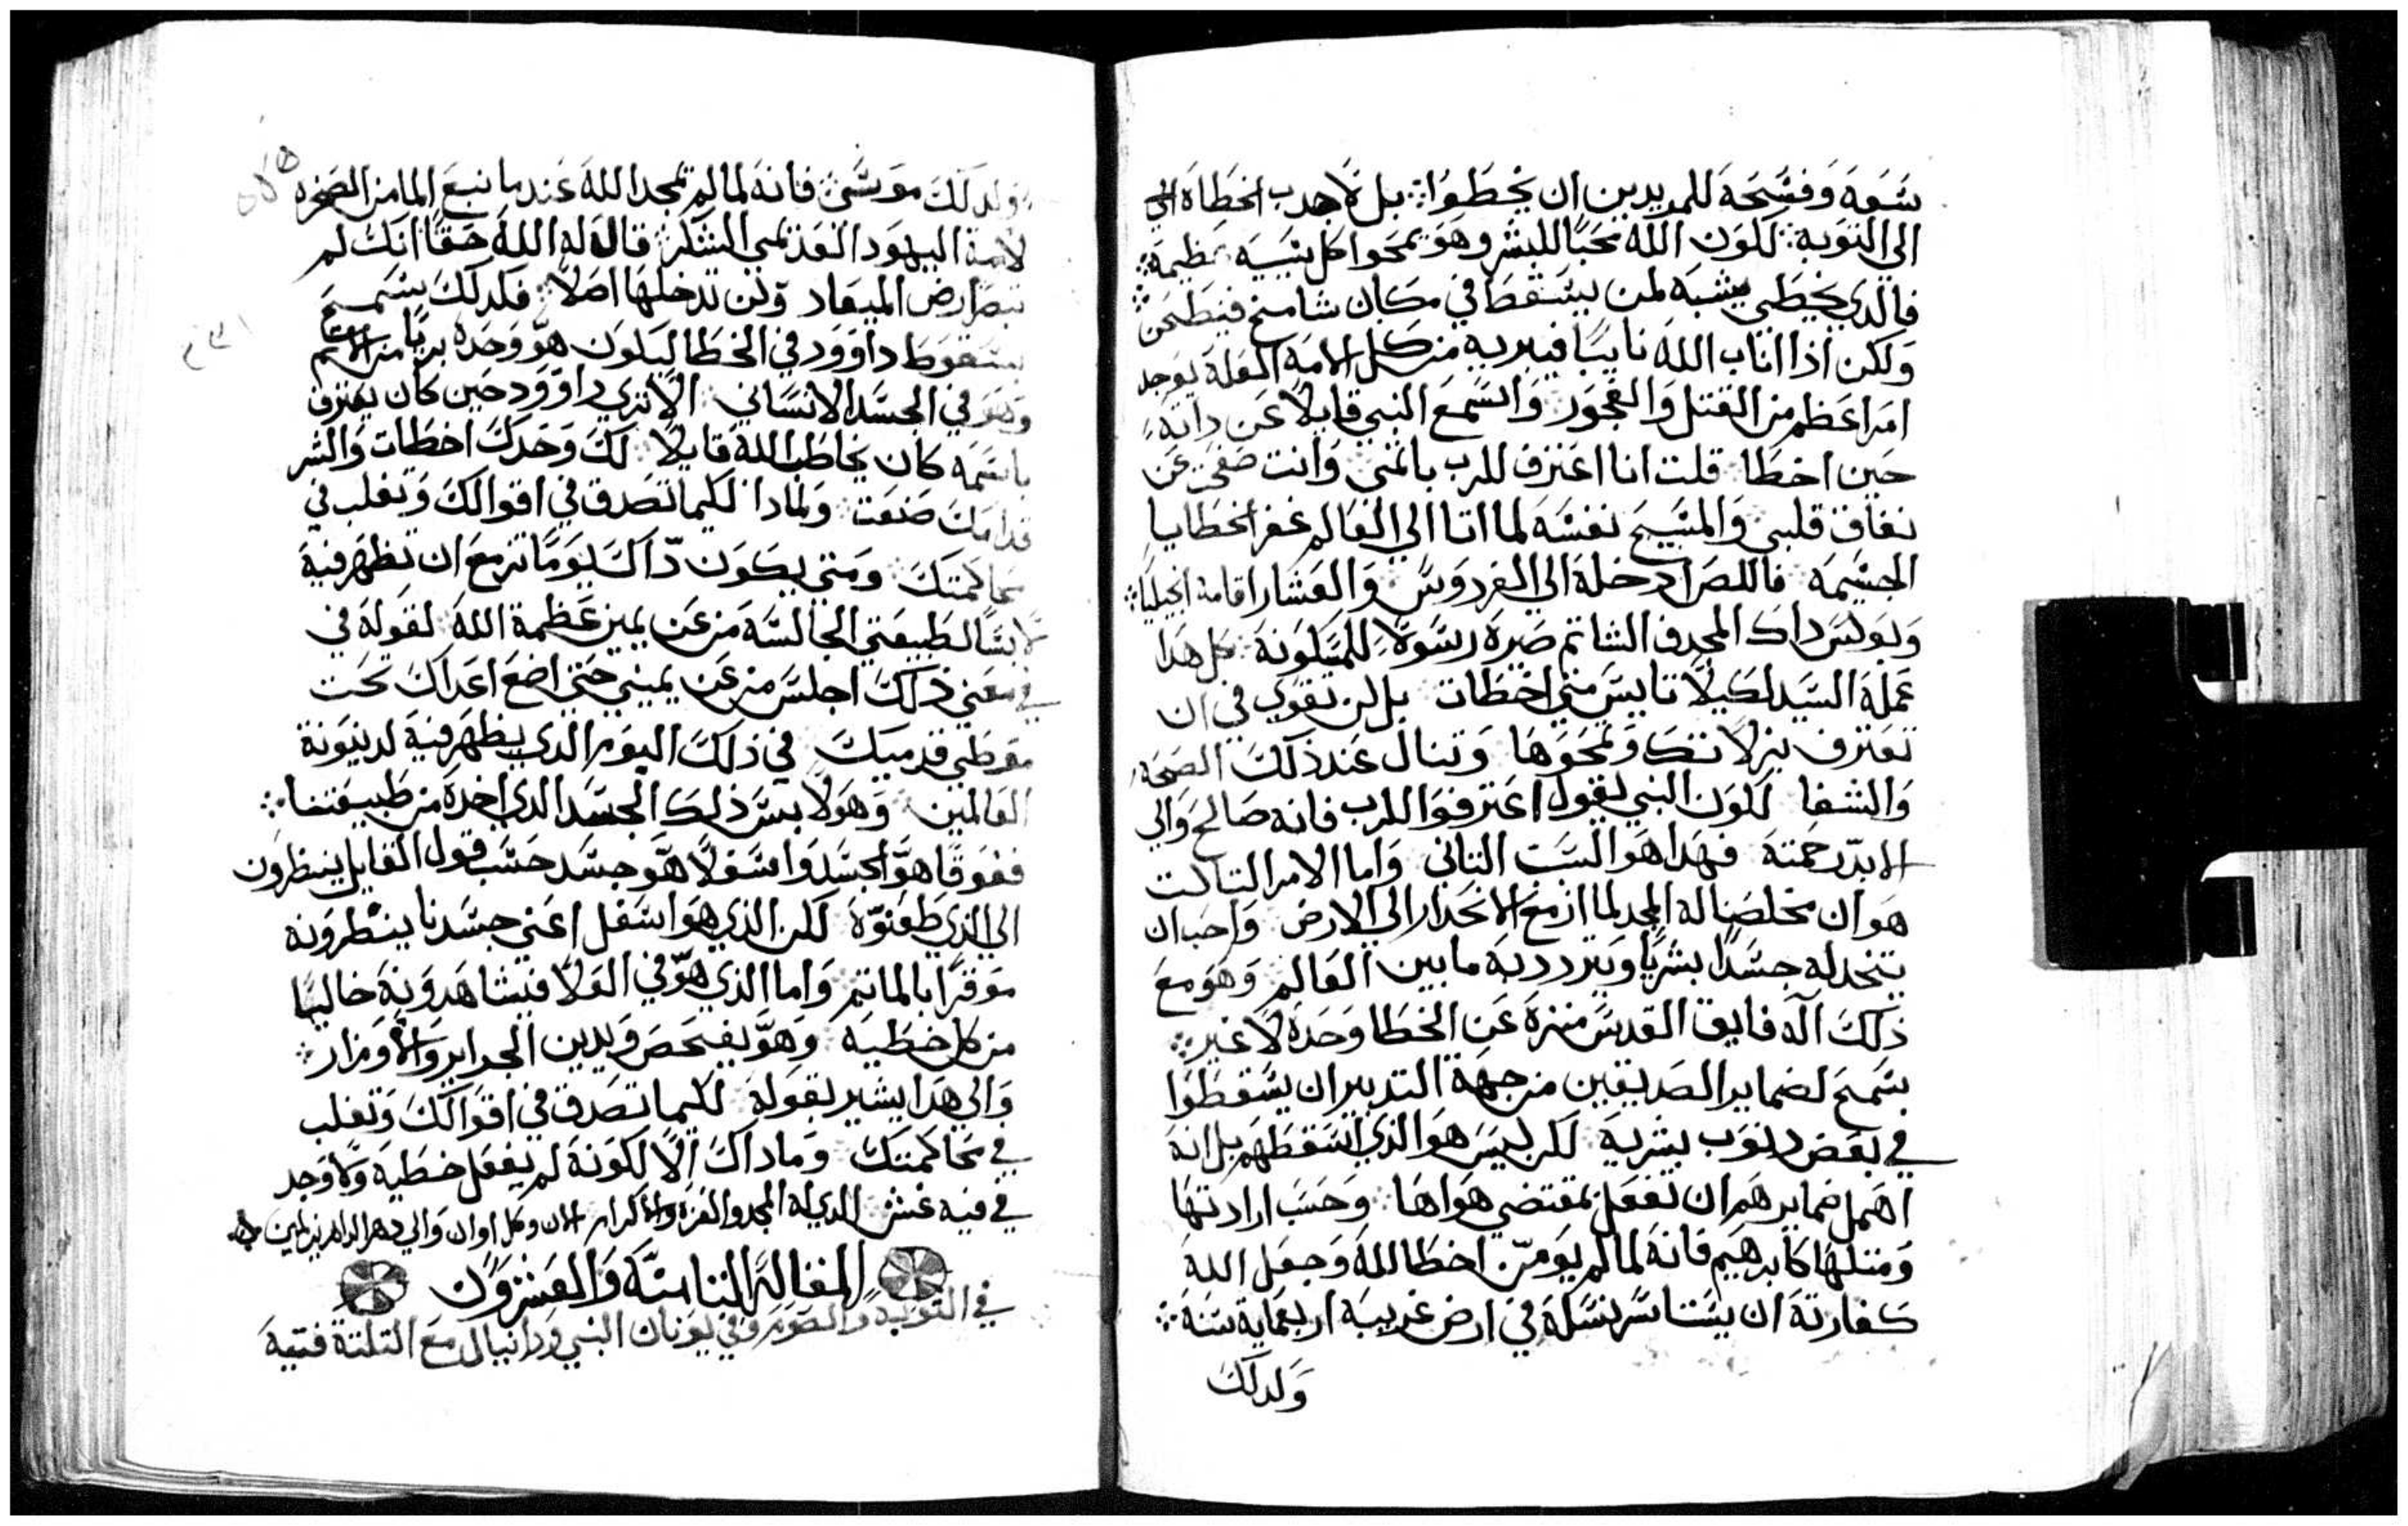 سَعَة وَفسَّحَة للمريدين ان يخطَوا ؛ بل لاجدب الخطاة الي
الي التوَبة ؛ لكون الله محبًا للبشر وهوَ يمحوا كل سَيية عظيمة ؛
فالدي يخطي يشبَه لمن يسَقط في مكان شامخ فينطحن
ولكن اذا اناب الله تايبًا فيبريه من كل الامَه العله يوجد
امرا عَظم من القتل وَالفجور وَاسَمع النبي قايلاً عَن داته
حَين اخطا ؛ قلت انا اعَترف للرب باثمي ؛ وَانت صفحت عَن
نفاق قلبي وَالمسَيح نفسَه لما اتا الي العَالم غفر الخطايا
الجسَيمه فاللص ادخله الي الفردوسَ وَالعَشار اقامه انجيليا ؛
وَبولسَ داك المجدف الشاتم صَيره رسَولاً للمسَكونه كل هدا
عَمله السَيد لكيلا تايسَ متي اخطات بل لن تقوي في ان
تعترف بزلاتك وَتمحَوها وَتنال عَند ذلك الصَحة
وَالشفا لكون النبي يقول اعَترفوا للرب فانه صَالح وَالي
الابد رحَمته فهدا هوَ السَبت التاني وَاما الامر التالت
هوَ ان مخلصَنا له المجد لما ازمع الانحَدار الي الارض وَاحَب ان
يتخد له جسَدًا بشريًا وَيتردد به ما بين العَالم وَهوَ مع
ذلك اله فايق القدسَ منزه عَن الخطا وحَده لا غير ؛
سَمح لضماير الصَديقين من جهة التدبير ان يسَقطوا
في بعَض دنوَب بشرية لكن ليسَ هوَ الذي اسَقطهم بل انه
اهمل ضمايرهم ان تفعَل بمقتضي هوَاها ؛ وَحَسَب ارادتها
وَمتلها كابرهيم فانه لما لم يوَمن اخطا لله وَجعَل الله
كفارته ان يسَتاسَر نسَله في ارض غريبَه اربعماية سَنة ؛
وَلدلك
وَلدلك موَسَي ؛ فانه لما لم يمجد الله عَند ما نبع الما من الصَخره
لامة اليهود العَدَيمي الشكر ؛ قال له الله حَقًا انك لم
تبصَر ارض الميعَاد وَلن تدخلها اصَلاً ؛ فلدلك يسَمح
بسَقوط داوَود في الخطا ليكون هوَّ وَحَده بريًا من الاثم
وَهوَ في الجسَد الانسَاني ؛ الا تري داوَود حَين كان يعَترف
باثمه كان يخاطب الله قايلاً ؛ لك وَحَدك اخطات وَالشر
قدامك صَنعَت وَلمادا لكيما تصَدق في اقوالك وَتغلب في
محاكمتك وَمتي يكون داك يوَمًا تزمع ان تظهر فيه
لابسًا لطبيعَتي الجالسَة من عَن يمين عَظمة الله لقوله في
في معَني ذلك اجلسَ من عَن يميني حَتي اضع اعَداك تحت
موَطي قدميك في ذلك اليوَم الدي يظهر فيه لدينونة
العَالمين وَهوَ لابسَ ذلك الجسَد الدي اخده من طبيعَتنا ؛
ففوَقًا هوَّ الجسَد وَاسَفلاً هوَّ جسَد حَسَب قول القايل ينظرون
الي الذي طعَنوَّه لكن الذي هوَ اسَفل اعَني جسَدنا ينظرونه
موَقرًا بالماتم وَاما الذي هوَّ في العَلا فيشاهدوَنه خاليًا
من كل خطية وَهوَّ يفحَصَ وَيدين الجراير وَالاوزار ؛
وَالي هدا يشير بقوله لكيما تصَدق في اقوالك وَتغلب
في محاكمتك وَما داك الا لكونه لم يفعَل خطية وَلا وَجد
في فيه غش الدي له المجد والعزه والاكرام الان وكل اوان وَالي دهر الداهرين امين
المقالة التامنَة وَالعَشرون
في التوبة وَالصَوم وَفي يونان النبي وَدانيال مع التلتة فتية